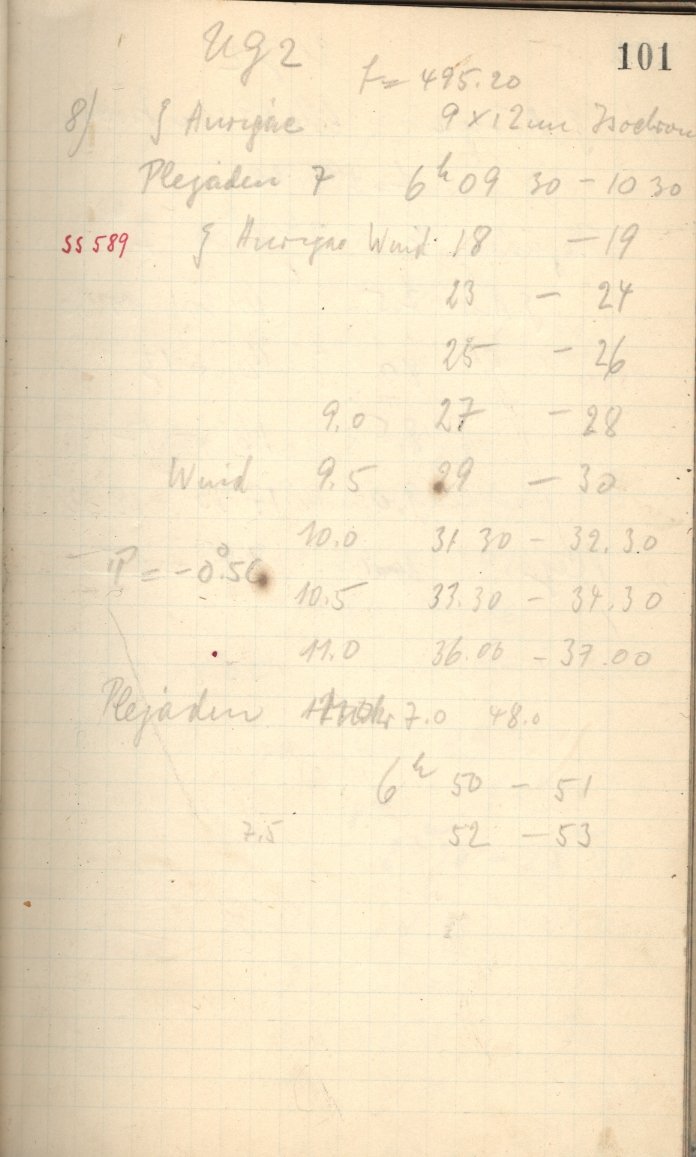 UG2 101
f = 495.20
8) ξ Aurigae 9 x 12 cm Isochrom
Plejaden 7 6h 09 30 - 10 30
SS 589 ξ Aurigae Wind 18 - 19
23 - 24
25 - 26
9.0 27 - 28
Wind 9.5 29 - 30
10.0 31 30 - 32.30
= -0°.50
10.5 33.30 - 34.30
11.0 36.00 - 37.00
Plejaden 7.0 48.0
6h 50 - 51
7.5 52 - 53